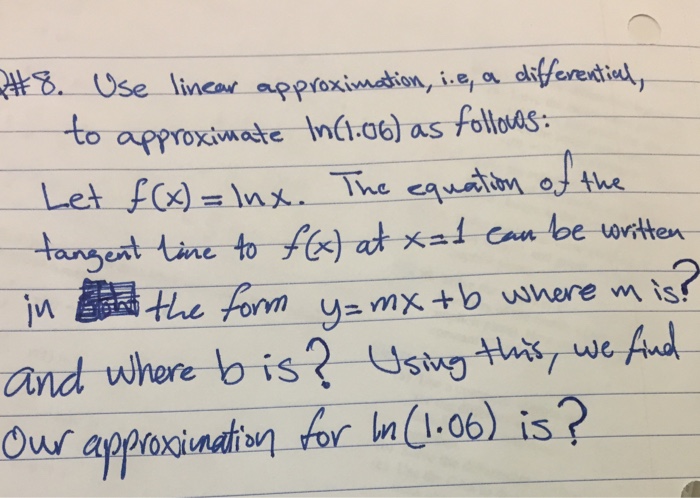 #8. Use linear approximation, i.e, a differential,
to approximate ln(1.06) as follows:
Let f(x) = ln x. The equation of the
tangent line to f(x) at x=1 can be written
in the form y=mx+b where m is?
and where b is? Using this, we find
Our approximation for ln(1.06) is?